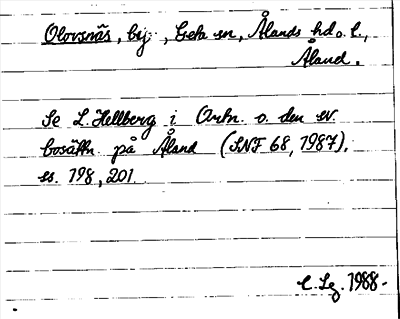 Olovsnäs, by, Geta sn, Ålands hd o. l.,
Åland.
Se L. Hellberg i Ortn. o. den sv.
bosättn. på Åland (SNF 68, 1987),
ss. 198, 201.
1988.